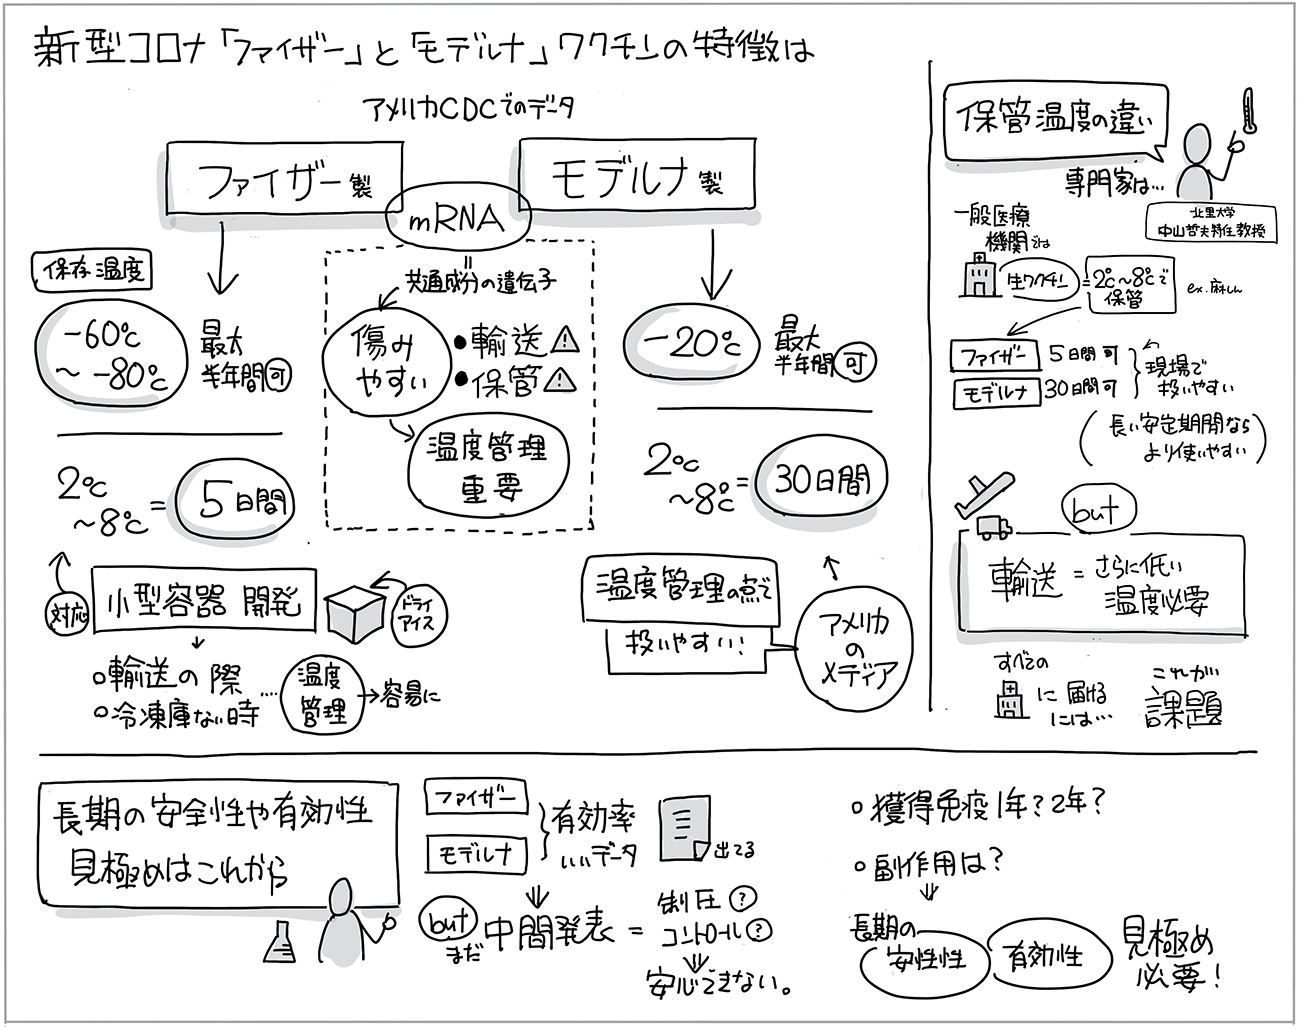 新型コロナ「ファイザー」と「モデルナ」ワクチンの特徴は
アメリカCDCでのデータ
ファイザー製
モデルナ製
mRNA
=
共通成分の遺伝子
傷み
やすい
•輸送⚠
•保管⚠
温度管理
重要
保存温度
-60℃
〜-80℃
最大
半年間可
2℃
〜8℃
=
5日間
対応
小型容器 開発
ドライ
アイス
○輸送の際
○冷凍庫ない時
....
温度
管理
→容易に
-20℃
最大
半年間可
2℃
〜8℃
=
30日間
温度管理の点で
扱いやすい!
アメリカ
の
メディア
保管温度の違い
専門家は…
北里大学
中山哲夫特任教授
一般医療
機関では
生ワクチン
=2℃〜8℃で
保管
ex.麻しん
ファイザー
5日間可
モデルナ
30日間可
現場で
扱いやすい
(長い安定期間なら
より使いやすい)
but
輸送=さらに低い
温度必要
すべての
に届ける
には…
これが
課題
長期の安全性や有効性
見極めはこれから
ファイザー
モデルナ
有効率
いいデータ
出てる
but
まだ
中間発表=
制圧?
コントロール?
安心できない。
○獲得免疫1年?2年?
○副作用は?
長期の
安性性
有効性
見極め
必要!